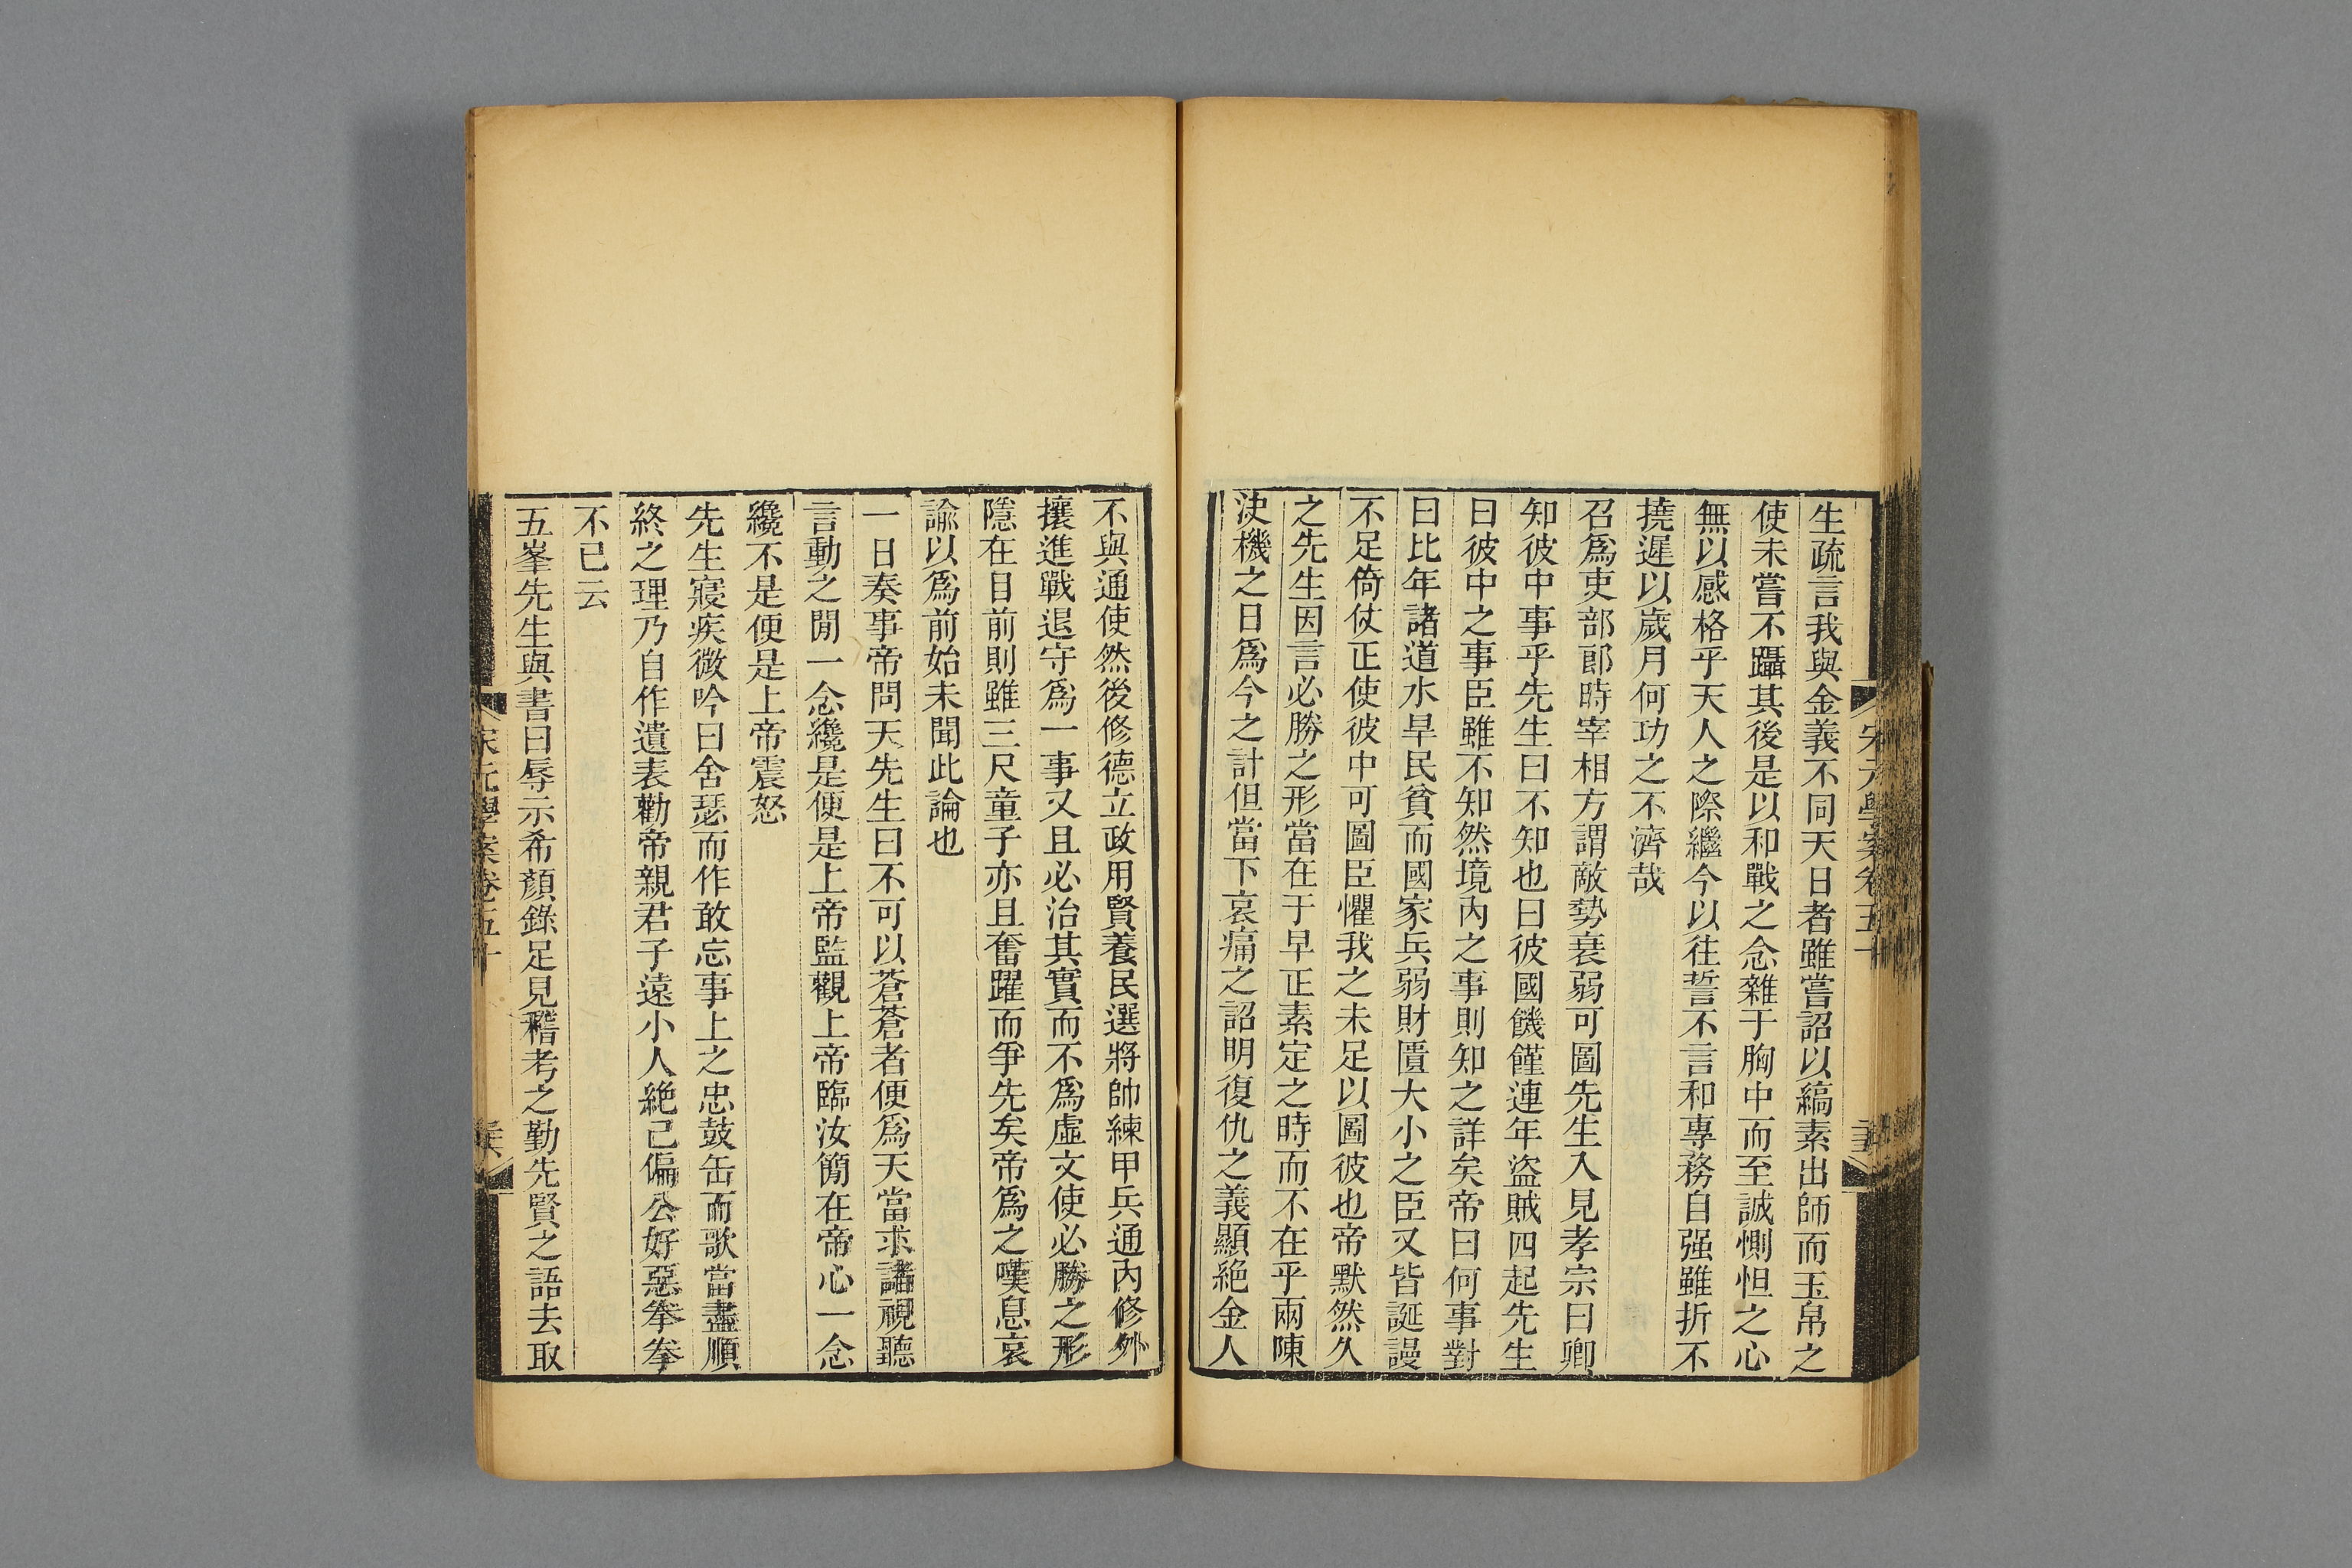 生疏言我與金義不同天日者雖嘗詔以縞素出師而玉帛之
使未嘗不躡其後是以和戰之念雜于胸中而至誠惻怛之心
無以感格乎天人之際繼今以往誓不言和專務自强雖折不
撓遲以歲月何功之不濟哉
召爲吏部郎時宰相方謂敵勢衰弱可圖先生入見孝宗曰卿
知彼中事乎先生曰不知也曰彼國饑饉連年盜賊四起先生
曰彼中之事臣雖不知然境內之事則知之詳矣帝曰何事對
曰比年諸道水旱民貧而國家兵弱財匱大小之臣又皆誕謾
不足倚仗正使彼中可圖臣懼我之未足以圖彼也帝默然久
之先生因言必勝之形當在于早正素定之時而不在乎兩陳
決機之日爲今之計但當下哀痛之詔明復仇之義顯絶金人
宋元學案卷五十
二十五
不與通使然後修德立政用賢養民選將帥練甲兵通內修外
攘進戰退守爲一事又且必治其實而不爲虛文使必勝之形
隱在目前則雖三尺童子亦且奮躍而爭先矣帝爲之嘆息哀
諭以爲前始未聞此論也
一日奏事帝問天先生曰不可以蒼蒼者便爲天當求諸視聽
言動之閒一念纔是便是上帝監觀上帝臨汝簡在帝心一念
纔不是便是上帝震怒
先生寢疾微吟曰舍瑟而作敢忘事上之忠鼓缶而歌當盡順
終之理乃自作遺表勸帝親君子遠小人絶己偏公好惡拳拳
不已云
五峯先生與書曰辱示希顏錄足見稽考之勤先賢之語去取
宋元學案卷五十
二十六